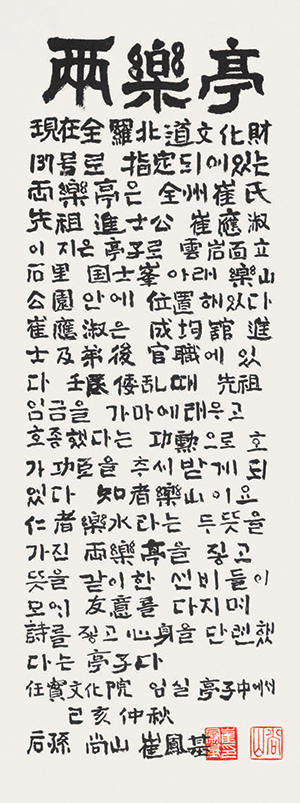 兩樂亭
現在全羅北道文化財
137号로 指定되에있는
両樂亭은 全州崔氏
先祖 進士公 崔應淑
이 지은 亭子로 雲岩面立
石里 国士峯 아래 樂山
公園 안에 位置해있다
崔應淑은 成均館 進
士及弟後 官職에 있
다 壬辰倭乱때 先祖
임금을 가마에태우고
호종했다는 功勲으로 호
가功臣을 추시받게 되
었다 知者樂山이요
仁者樂水라는 두뜻을
가진 両樂亭을 짛고
뜻을 같이한 선비들이
모여 友意를 다지며
詩를 짛고 心身을 단련했
다는 亭子다
任實文化院 임실 亭子中에서
己亥仲秋
后孫 尙山 崔鳳基